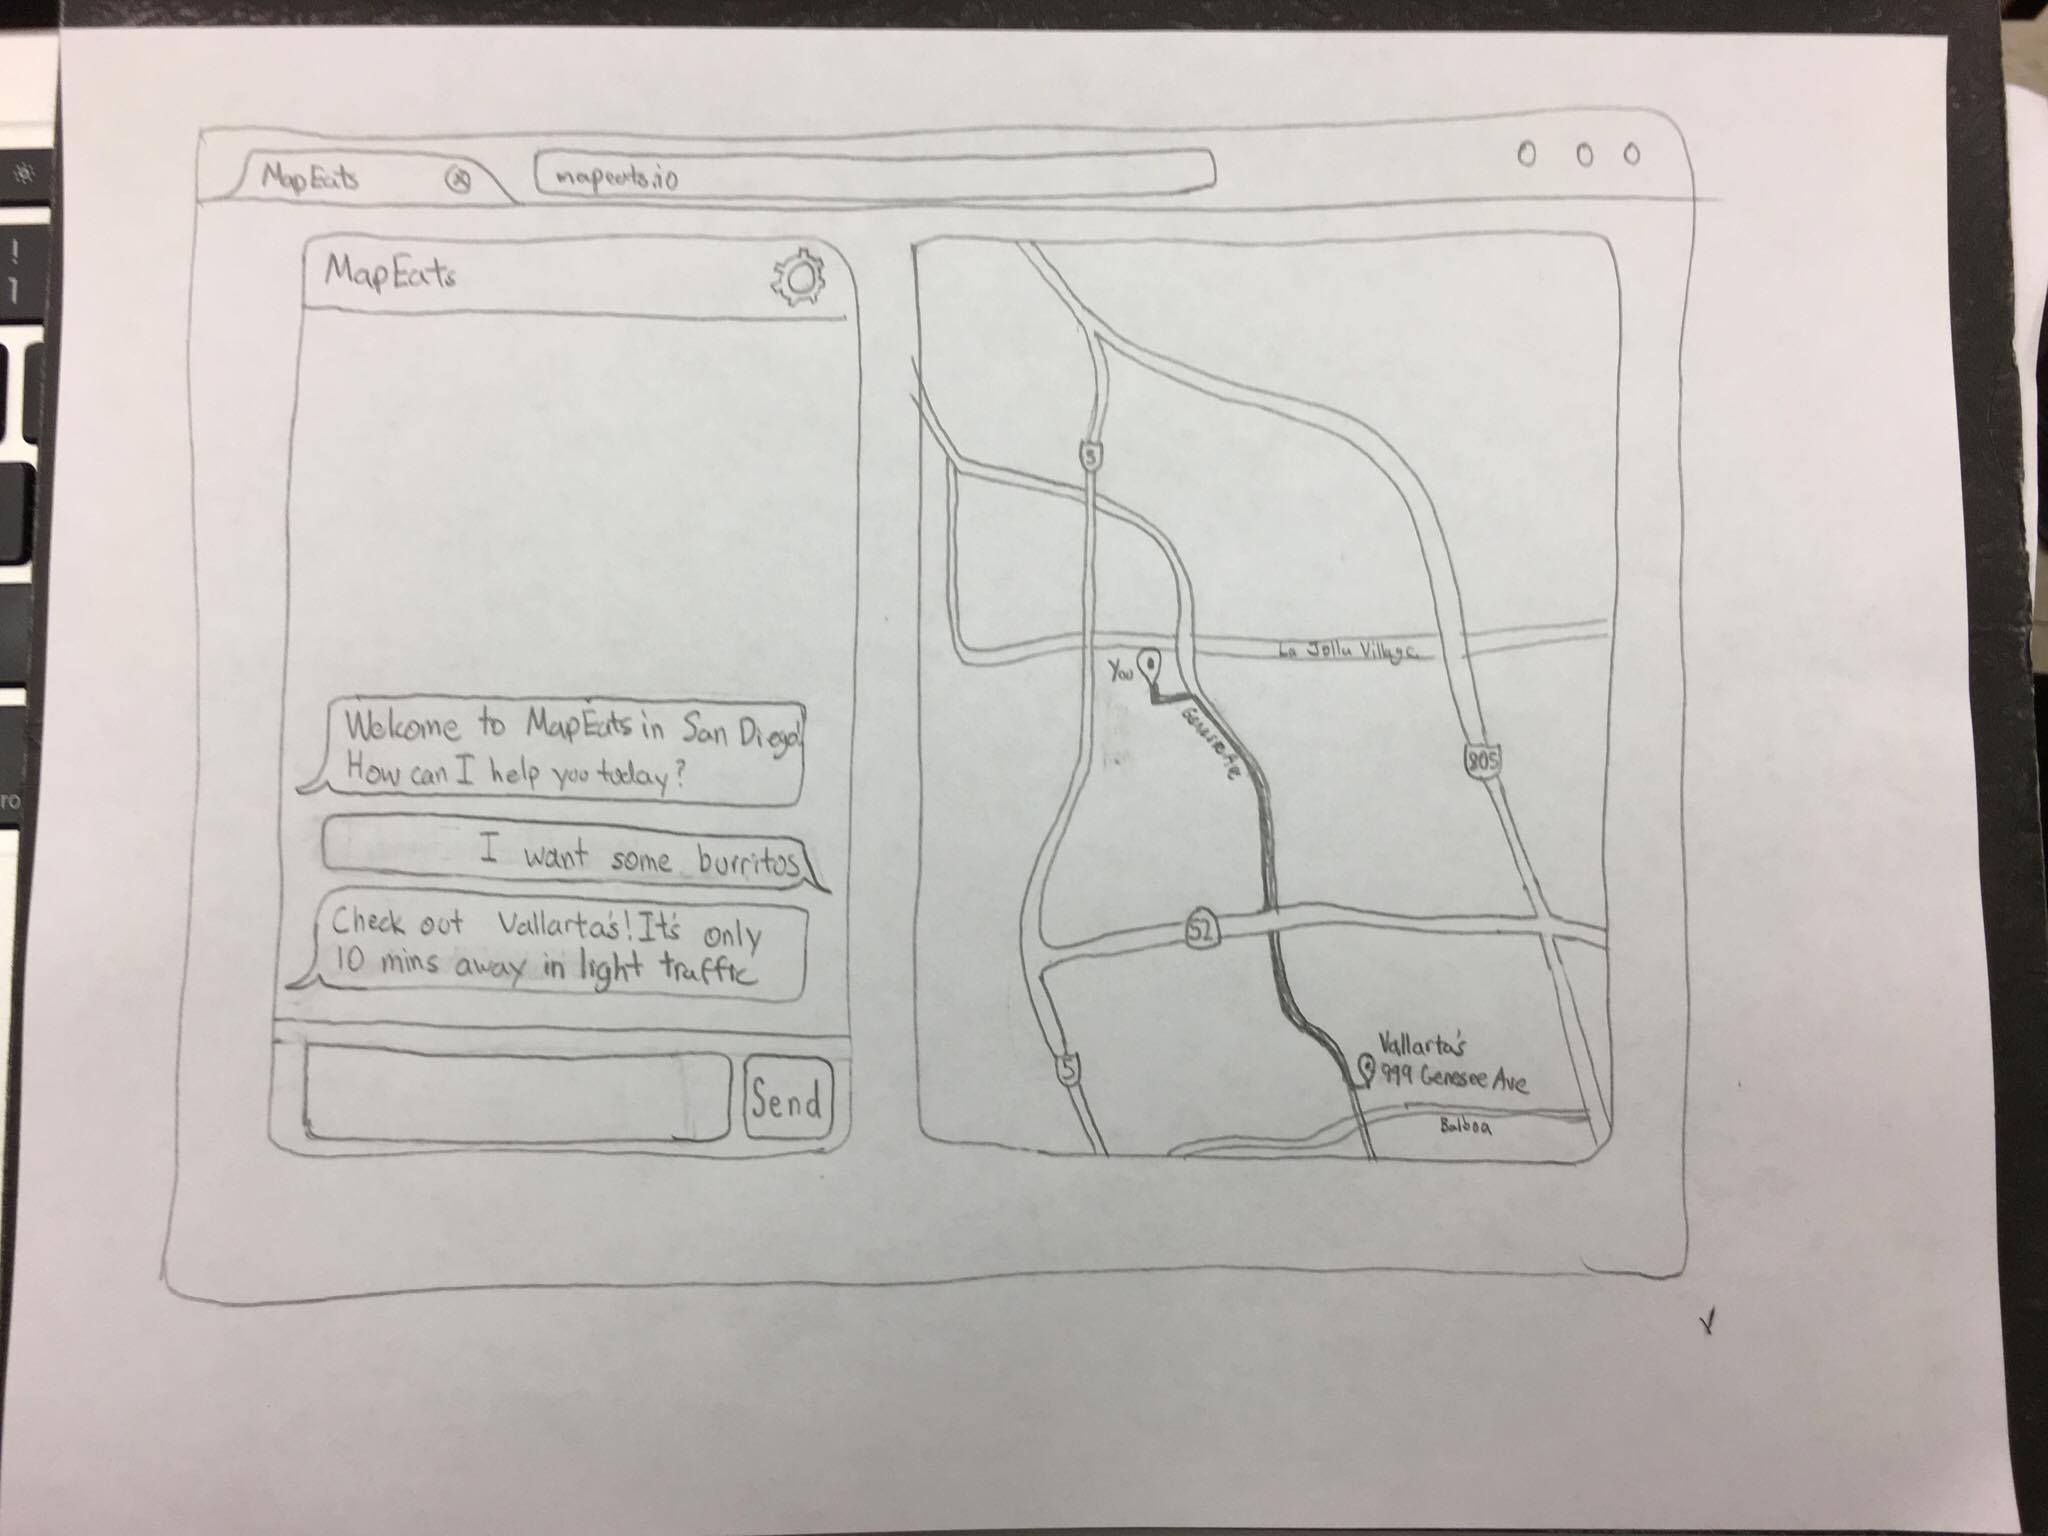 MapEats
mapeats.io
MapEats
Welcome to MapEats in San Diego!
How can I help you today?
I want some burritos
Check out Vallarta's! It's only
10 mins away in light traffic
Send
5
La Jolla Village
You
Genesee Ave
805
52
5
Vallarta's
999 Genesee Ave
Balboa
!
1